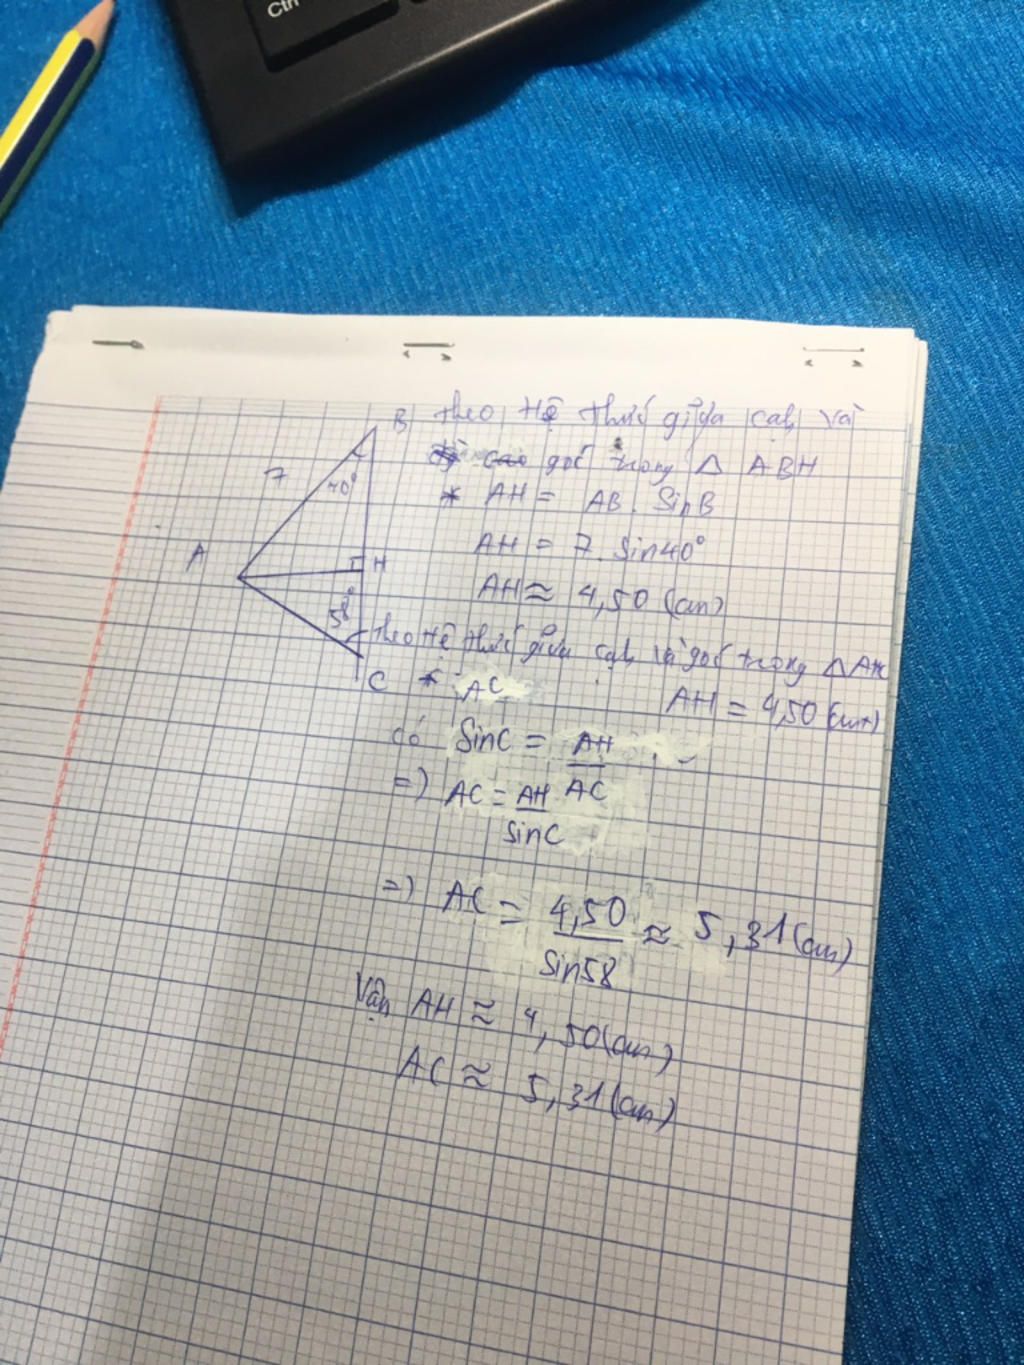 Ctrl
B
7
40°
A
H
58°
C
theo Hệ thức giữa cạh và
góc trong △ ABH
* AH = AB . SinB
AH = 7. Sin40°
AH ≈ 4,50 (cm)
theo Hệ thức giữa cạh và góc trong △ AHC
* AC
AH = 4,50 (cm)
có SinC = AH / AC
=) AC = AH / SinC
=) AC = 4,50 / Sin58 ≈ 5,31 (cm)
Vậy AH ≈ 4,50 (cm)
AC ≈ 5,31 (cm)